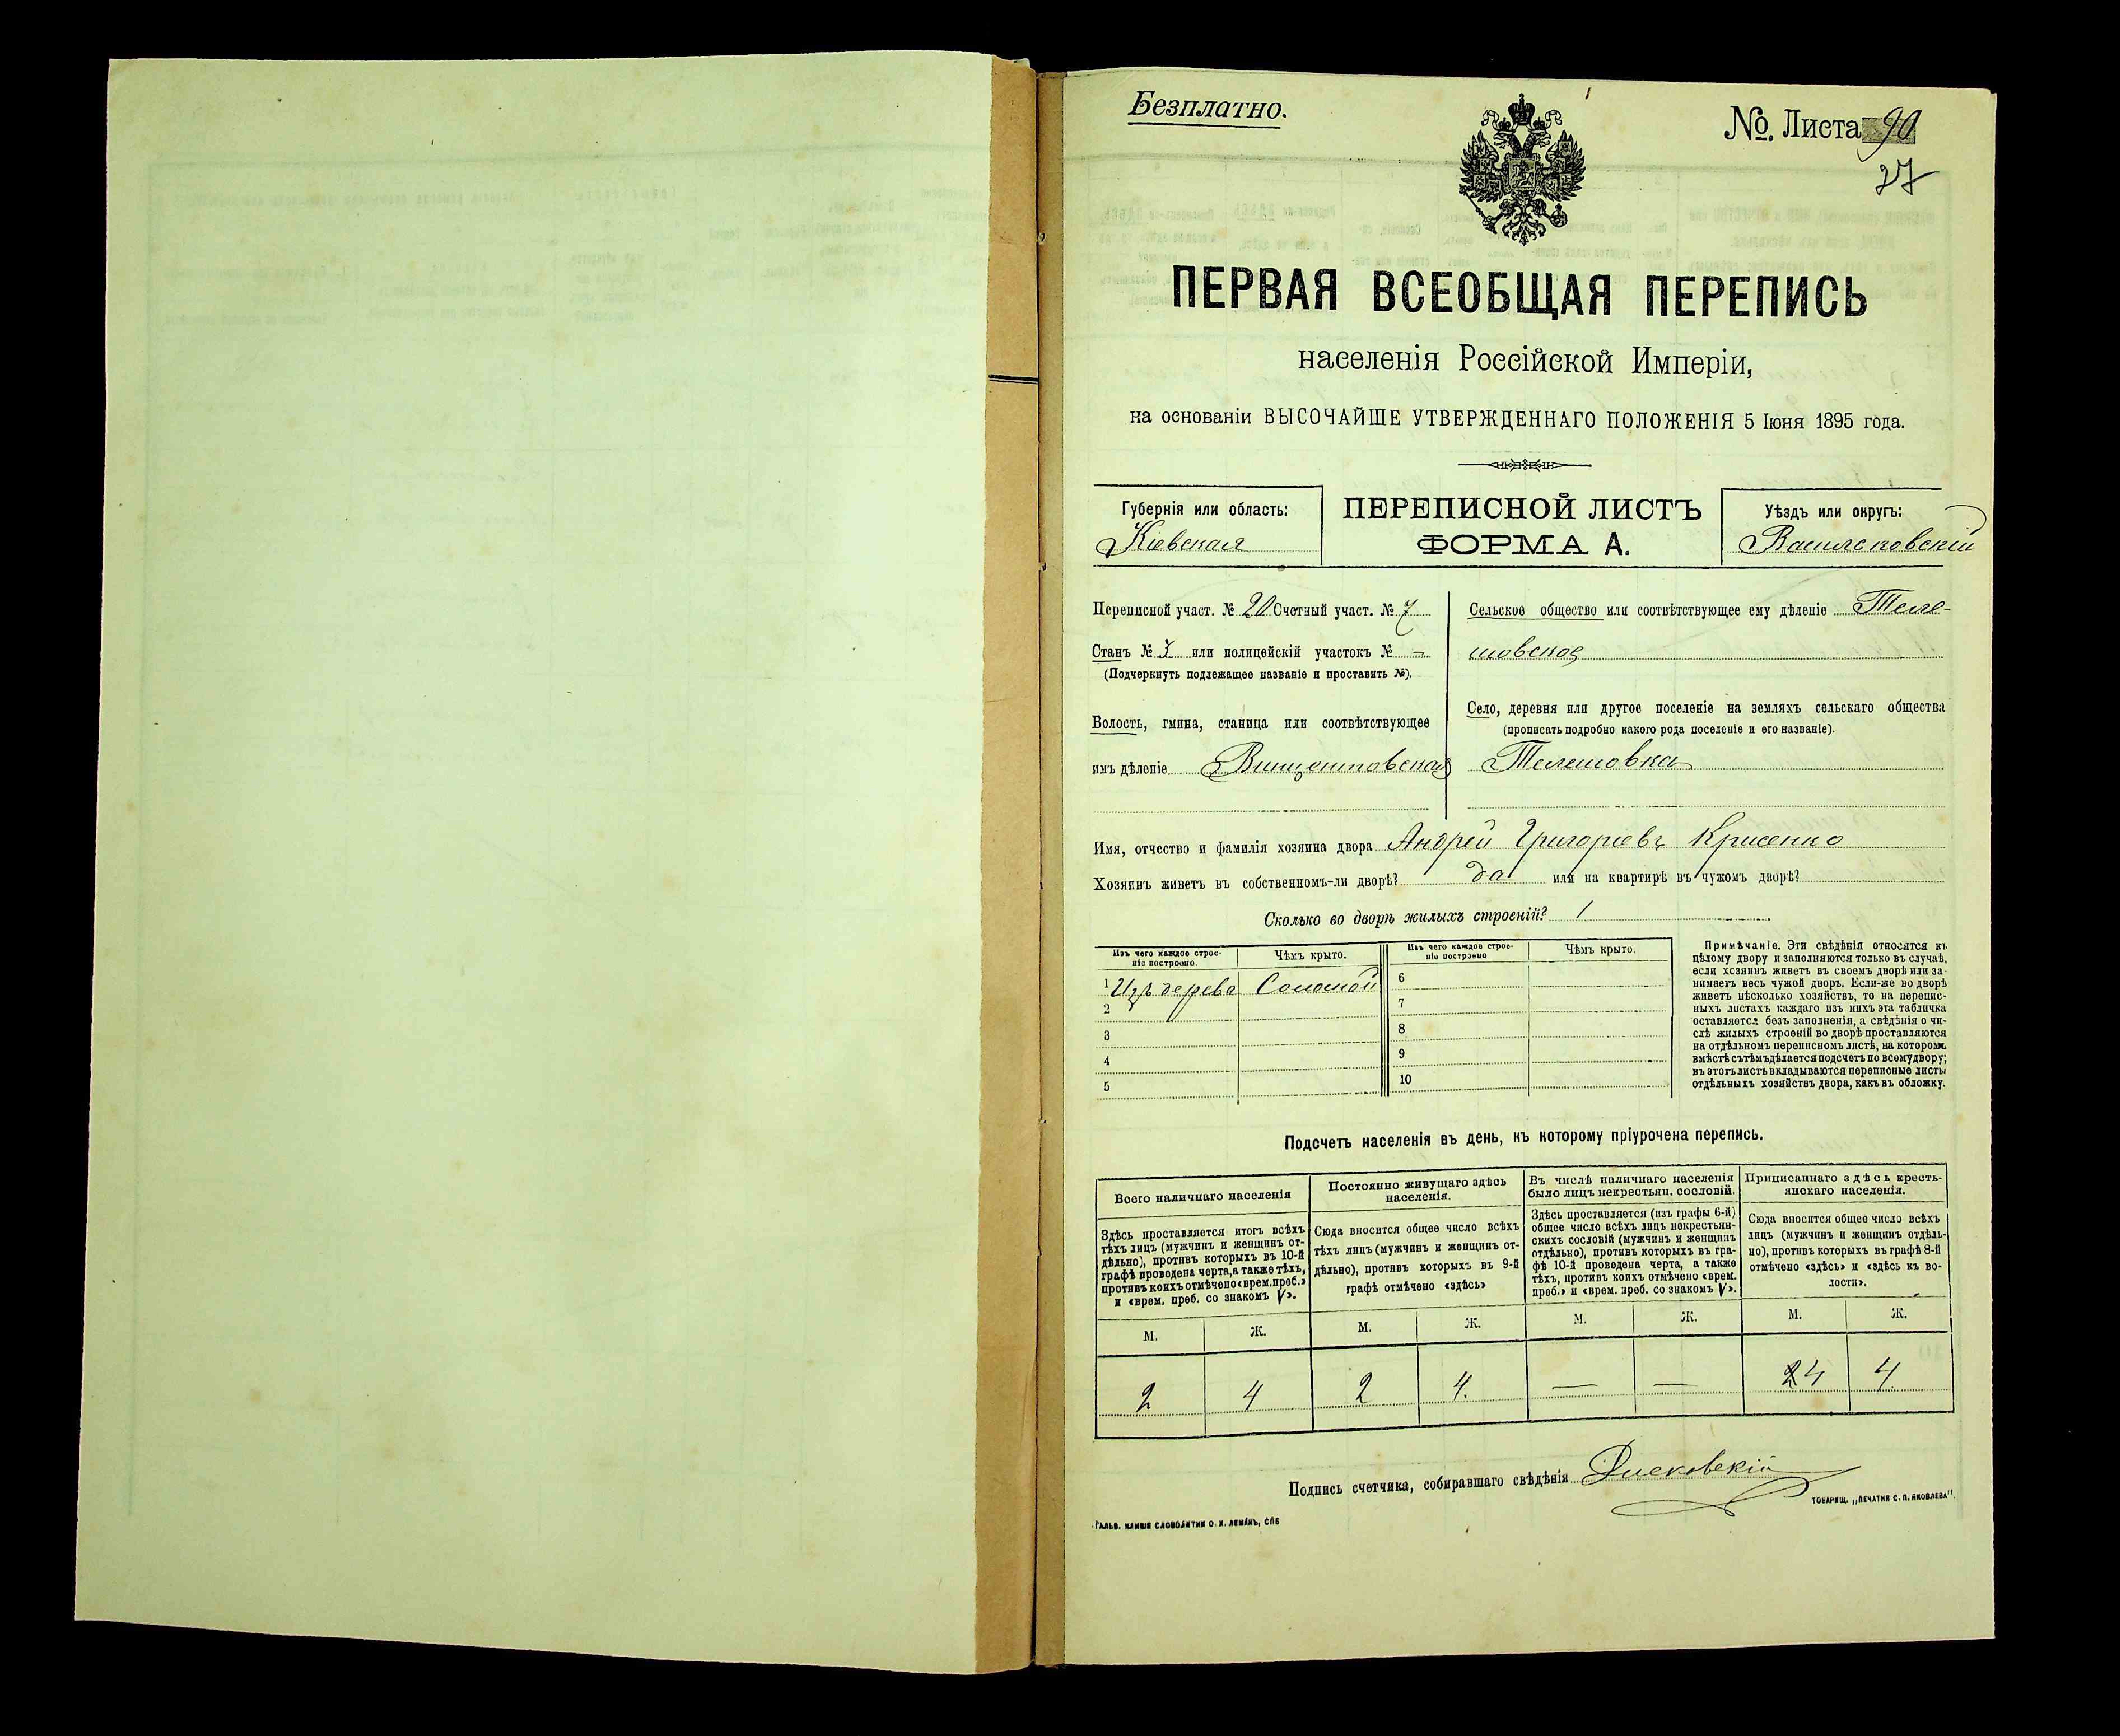 Безплатно.
№. Листа 90
27
ПЕРВАЯ ВСЕОБЩАЯ ПЕРЕПИСЬ
населенія Россійской Имперіи,
на основаніи ВЫСОЧАЙШЕ УТВЕРЖДЕННАГО ПОЛОЖЕНІЯ 5 Іюня 1895 года.
Губернія или область:
Кіевская
ПЕРЕПИСНОЙ ЛИСТЪ
ФОРМА А.
Уѣздъ или округъ:
Васильковскій
Переписной участ. № 20 Счетный участ. № 7
Станъ № 3 или полицейскій участокъ № -
(Подчеркнуть подлежащее названіе и проставить №).
Волость, гмина, станица или соотвѣтствующее
имъ дѣленіе Винцентовская
Сельское общество или соотвѣтствующее ему дѣленіе Теле-
шовское
Село, деревня или другое поселеніе на земляхъ сельскаго общества
(прописать подробно какого рода поселеніе и его названіе).
Телешовка
Имя, отчество и фамилія хозяина двора Андрей Григоріевъ Крисенко
Хозяинъ живетъ въ собственномъ-ли дворѣ? да или на квартирѣ въ чужомъ дворѣ?
Сколько во дворѣ жилыхъ строеній? 1
Изъ чего каждое строе-
ніе построено.
Чѣмъ крыто.
Изъ чего каждое строе-
ніе построено
Чѣмъ крыто.
1 Изъ дерева Соломой 6
2 7
3 8
4 9
5 10
Примѣчаніе. Эти свѣдѣнія относятся къ
цѣлому двору и заполняются только въ случаѣ,
если хозяинъ живетъ въ своемъ дворѣ или за-
нимаетъ весь чужой дворъ. Если-же во дворѣ
живетъ нѣсколько хозяйствъ, то на перепис-
ныхъ листахъ каждаго изъ нихъ эта табличка
оставляется безъ заполненія, а свѣдѣнія о чи-
слѣ жилыхъ строеній во дворѣ проставляются
на отдѣльномъ переписномъ листѣ, на которомъ
вмѣстѣ съ тѣмъ дѣлается подсчетъ по всему двору;
въ этотъ листъ вкладываются переписные листы
отдѣльныхъ хозяйствъ двора, какъ въ обложку.
Подсчетъ населенія въ день, къ которому пріурочена перепись.
Всего наличнаго населенія
Здѣсь проставляется итогъ всѣхъ
тѣхъ лицъ (мужчинъ и женщинъ от-
дѣльно), противъ которыхъ въ 10-й
графѣ проведена черта, а также тѣхъ,
противъ коихъ отмѣчено «врем. преб.»
и «врем. преб. со знакомъ V».
Постоянно живущаго здѣсь
населенія.
Сюда вносится общее число всѣхъ
тѣхъ лицъ (мужчинъ и женщинъ от-
дѣльно), противъ которыхъ въ 9-й
графѣ отмѣчено «здѣсь»
Въ числѣ наличнаго населенія
было лицъ некрестьян. сословій.
Здѣсь проставляется (изъ графы 6-й)
общее число всѣхъ лицъ некрестьян-
скихъ сословій (мужчинъ и женщинъ
отдѣльно), противъ которыхъ въ гра-
фѣ 10-й проведена черта, а также
тѣхъ, противъ коихъ отмѣчено «врем.
преб.» и «врем. преб. со знакомъ V».
Приписаннаго здѣсь кресть-
янскаго населенія.
Сюда вносится общее число всѣхъ
лицъ (мужчинъ и женщинъ отдѣль-
но), противъ которыхъ въ графѣ 8-й
отмѣчено «здѣсь» и «здѣсь къ во-
лости».
М. Ж. М. Ж. М. Ж. М. Ж.
2 4 2 4. — — 24 4
Подпись счетчика, собиравшаго свѣдѣнія
ГАЛЬВ. КЛИШЕ СЛОВОЛИТНИ О. И. ЛЕМАНЪ, СПБ
ТОВАРИЩ. „ПЕЧАТНЯ С. П. ЯКОВЛЕВА".